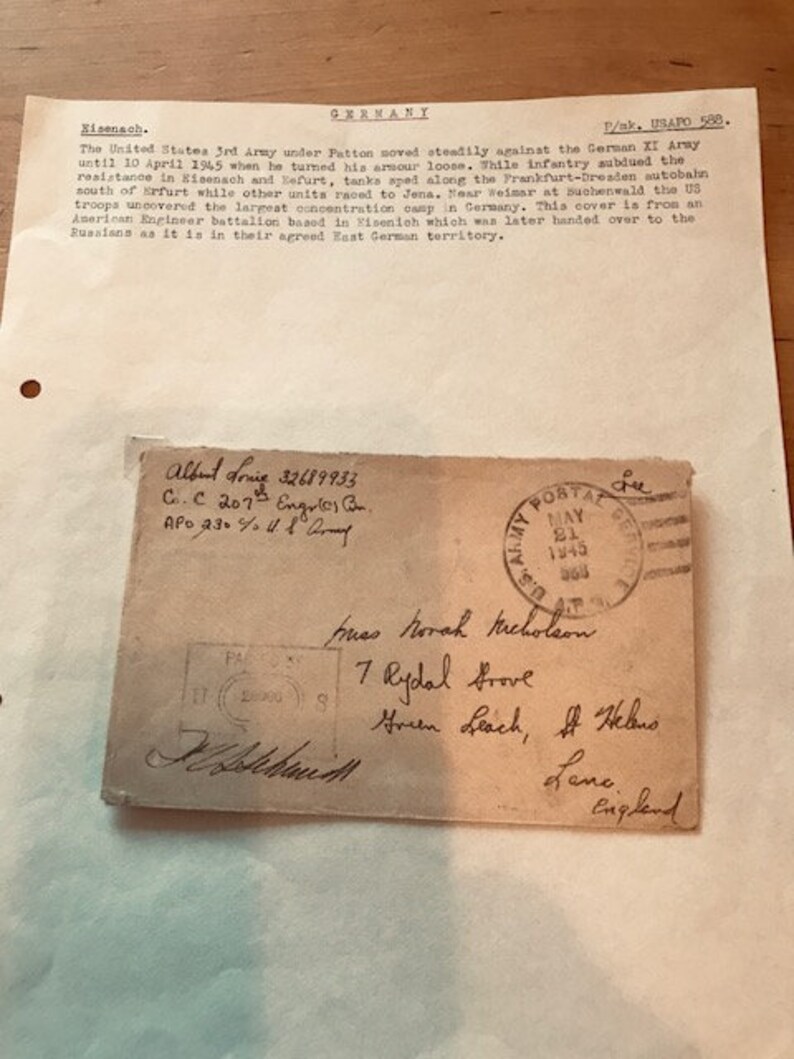 GERMANY
Eisenach.
P/mk. USAPO 588.
The United States 3rd Army under Patton moved steadily against the German XI Army
until 10 April 1945 when he turned his armour loose. While infantry subdued the
resistance in Eisenach and Eefurt, tanks sped along the Frankfurt-Dresden autobahn
south of Erfurt while other units raced to Jena. Near Weimar at Buchenwald the US
troops uncovered the largest concentration camp in Germany. This cover is from an
American Engineer battalion based in Eisenich which was later handed over to the
Russians as it is in their agreed East German territory.
Albert Louie 32689933
Co. C 207th Engr(C) Bn.
APO 230 c/o U.S Army
U.S. ARMY POSTAL SERVICE
MAY
21
1945
A.P.O.
Miss Norah Nicholson
7 Rydal Grove
Green Leach, St Helens
Lanc
England
PASSED BY
U S